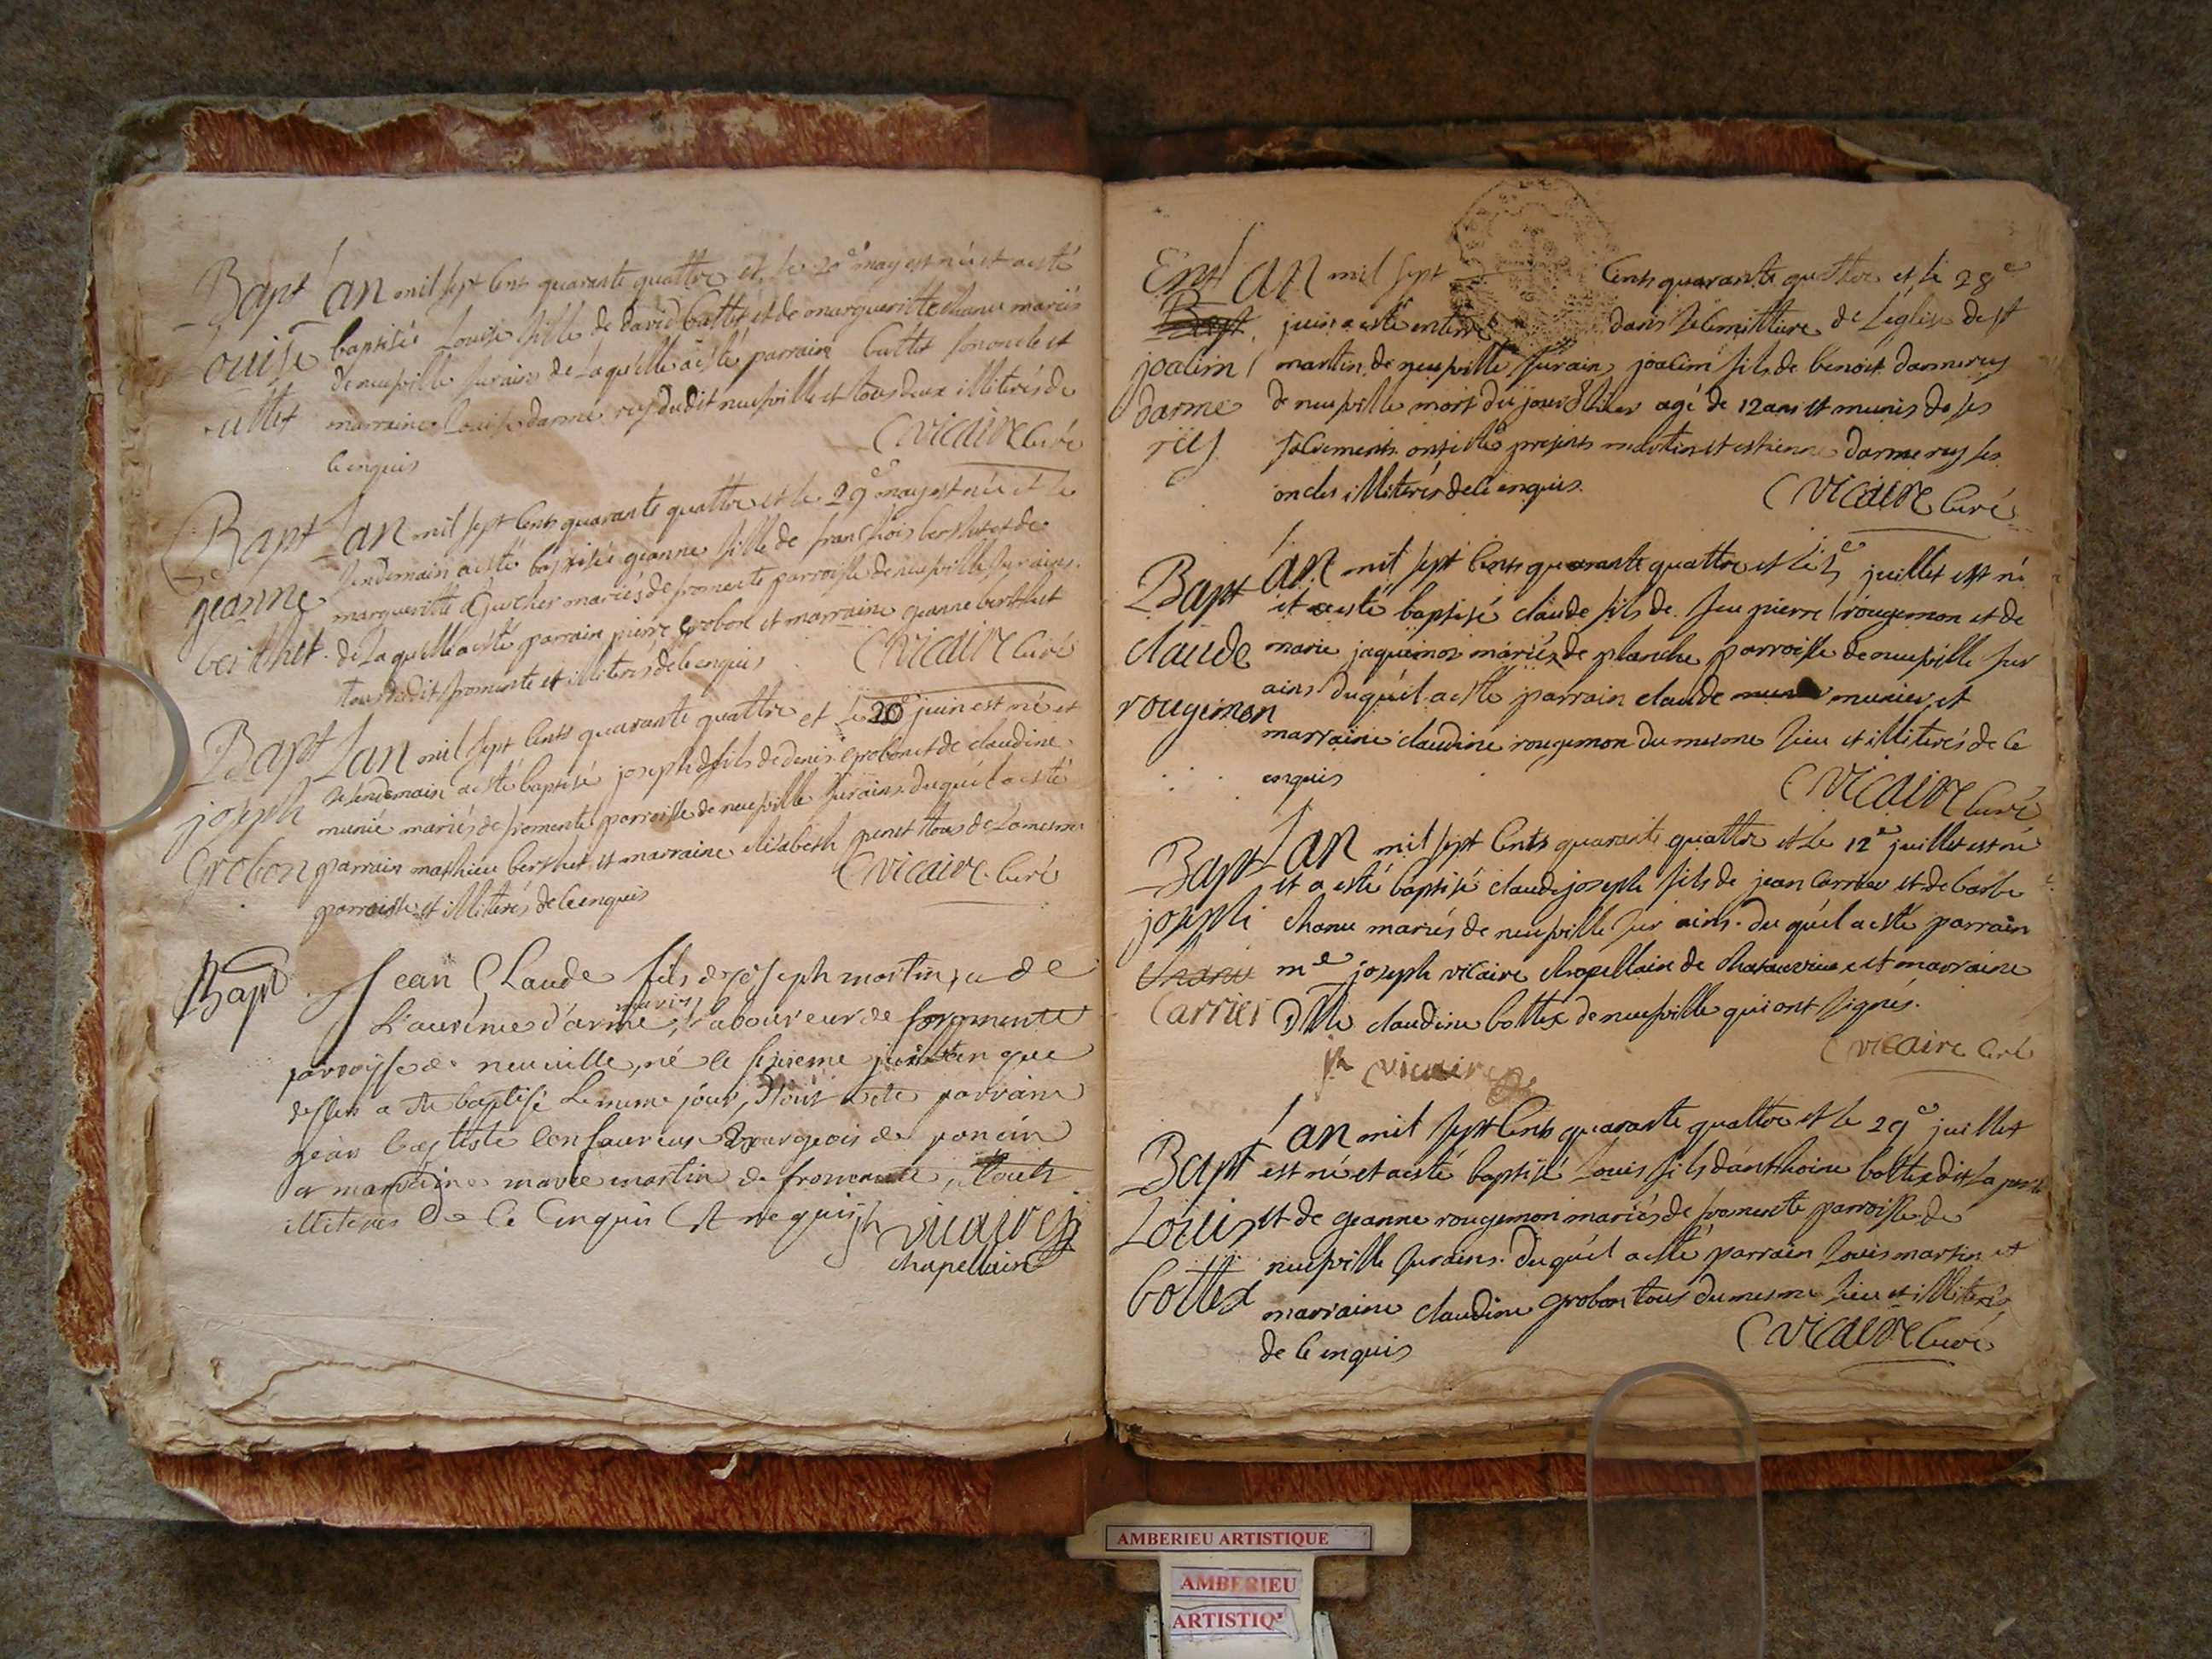 Bapt Lan mil sept Cents quarante quattre et le 20e may est née et a esté
Louise baptisée Louise fille de david buttet et de margueritte chanu mariés
buttet de neufville surains de Laquelle a esté parrain buttet son oncle et
marraine Louise darmerey dudit neufville et tous deux illiterés de
ce enquis Vicaire Curé
Bapt Lan mil sept Cents quarante quattre et le 29e may est née et le
geanne lendemain a esté baptisée geanne fille de franchois berthet et de
margueritte mariés de fromente parroisse de neufville surains
berthet de Laquelle a esté parrain pierre grobon et marraine geanne berthet
tous dudit fromente et illiterés de ce enquis Vicaire Curé
Bapt Lan mil sept Cents quarante quattre et le 20e juin est né et
joseph le lendemain a esté baptisé joseph fils de denis grobon et de claudine
munié mariés de fromente parroisse de neufville surains duquél a esté
Grobon parrain mathieu berthet et marraine elisabeth penet tous de La mesme
parroisse et illiterés de ce enquis Vicaire Curé
Bapt Jean Claude fils de joseph martin, et de
mariés
Laurence d'arme, Laboureur de fromente
parroysse de neuville, né le
dessus a été baptisé le meme jour, dont a été parrain
jean baptiste bourgeois de poncin
et marraine marie martin de fromente, touts
illiterés de ce Enquis Et requis jh vicaire
chapellain
Ent Lan mil sept Cents quarante quattre et le 28e
Bapt. juin a esté enterré dans le Cemittiere de Léglise de st
joacim martin de neufville surain, joacim fils de benoit darmerey
darme de neufville mort du jour d'hier agé de 12 ans et munis de ses
rey sacrements ont esté presents martin et estienne darmerey ses
oncles illiterés de ce enquis. Vicaire Curé
Bapt Lan mil sept Cents quarante quattre et le 5e juillet est né
et a esté baptisé claude fils de feu pierre rougemon et de
claude marie jaquemos mariés de planche parroisse de neufville sur
ains duquél a esté parrain claude munier et
rougemon marraine claudine rougemon du mesme lieu et illiterés de ce
enquis Vicaire Curé
Bapt Lan mil sept Cents quarante quattre et Le 12e juillet est né
et a esté baptisé claude joseph fils de jean Carrier et de barbe
joseph chanu mariés de neufville sur ains. duquél a esté parrain
chanu me joseph vicaire chapellain de et marraine
Carrier Dlle claudine bottex de neufville qui ont signés.
Vicaire Curé
jh vicaire
Bapt Lan mil sept Cents quarante quattre et le 29e juillet
est né et a esté baptisé Louis fils d'anthoine bottex dit La
Louis et de geanne rougemon mariés de fromente parroisse de
neufville surains. duquél a esté parrain Louis martin et
bottex marraine claudine grobon tous du mesme lieu et illiterés
de ce enquis Vicaire Curé
AMBERIEU ARTISTIQUE
AMBERIEU
ARTISTIQ